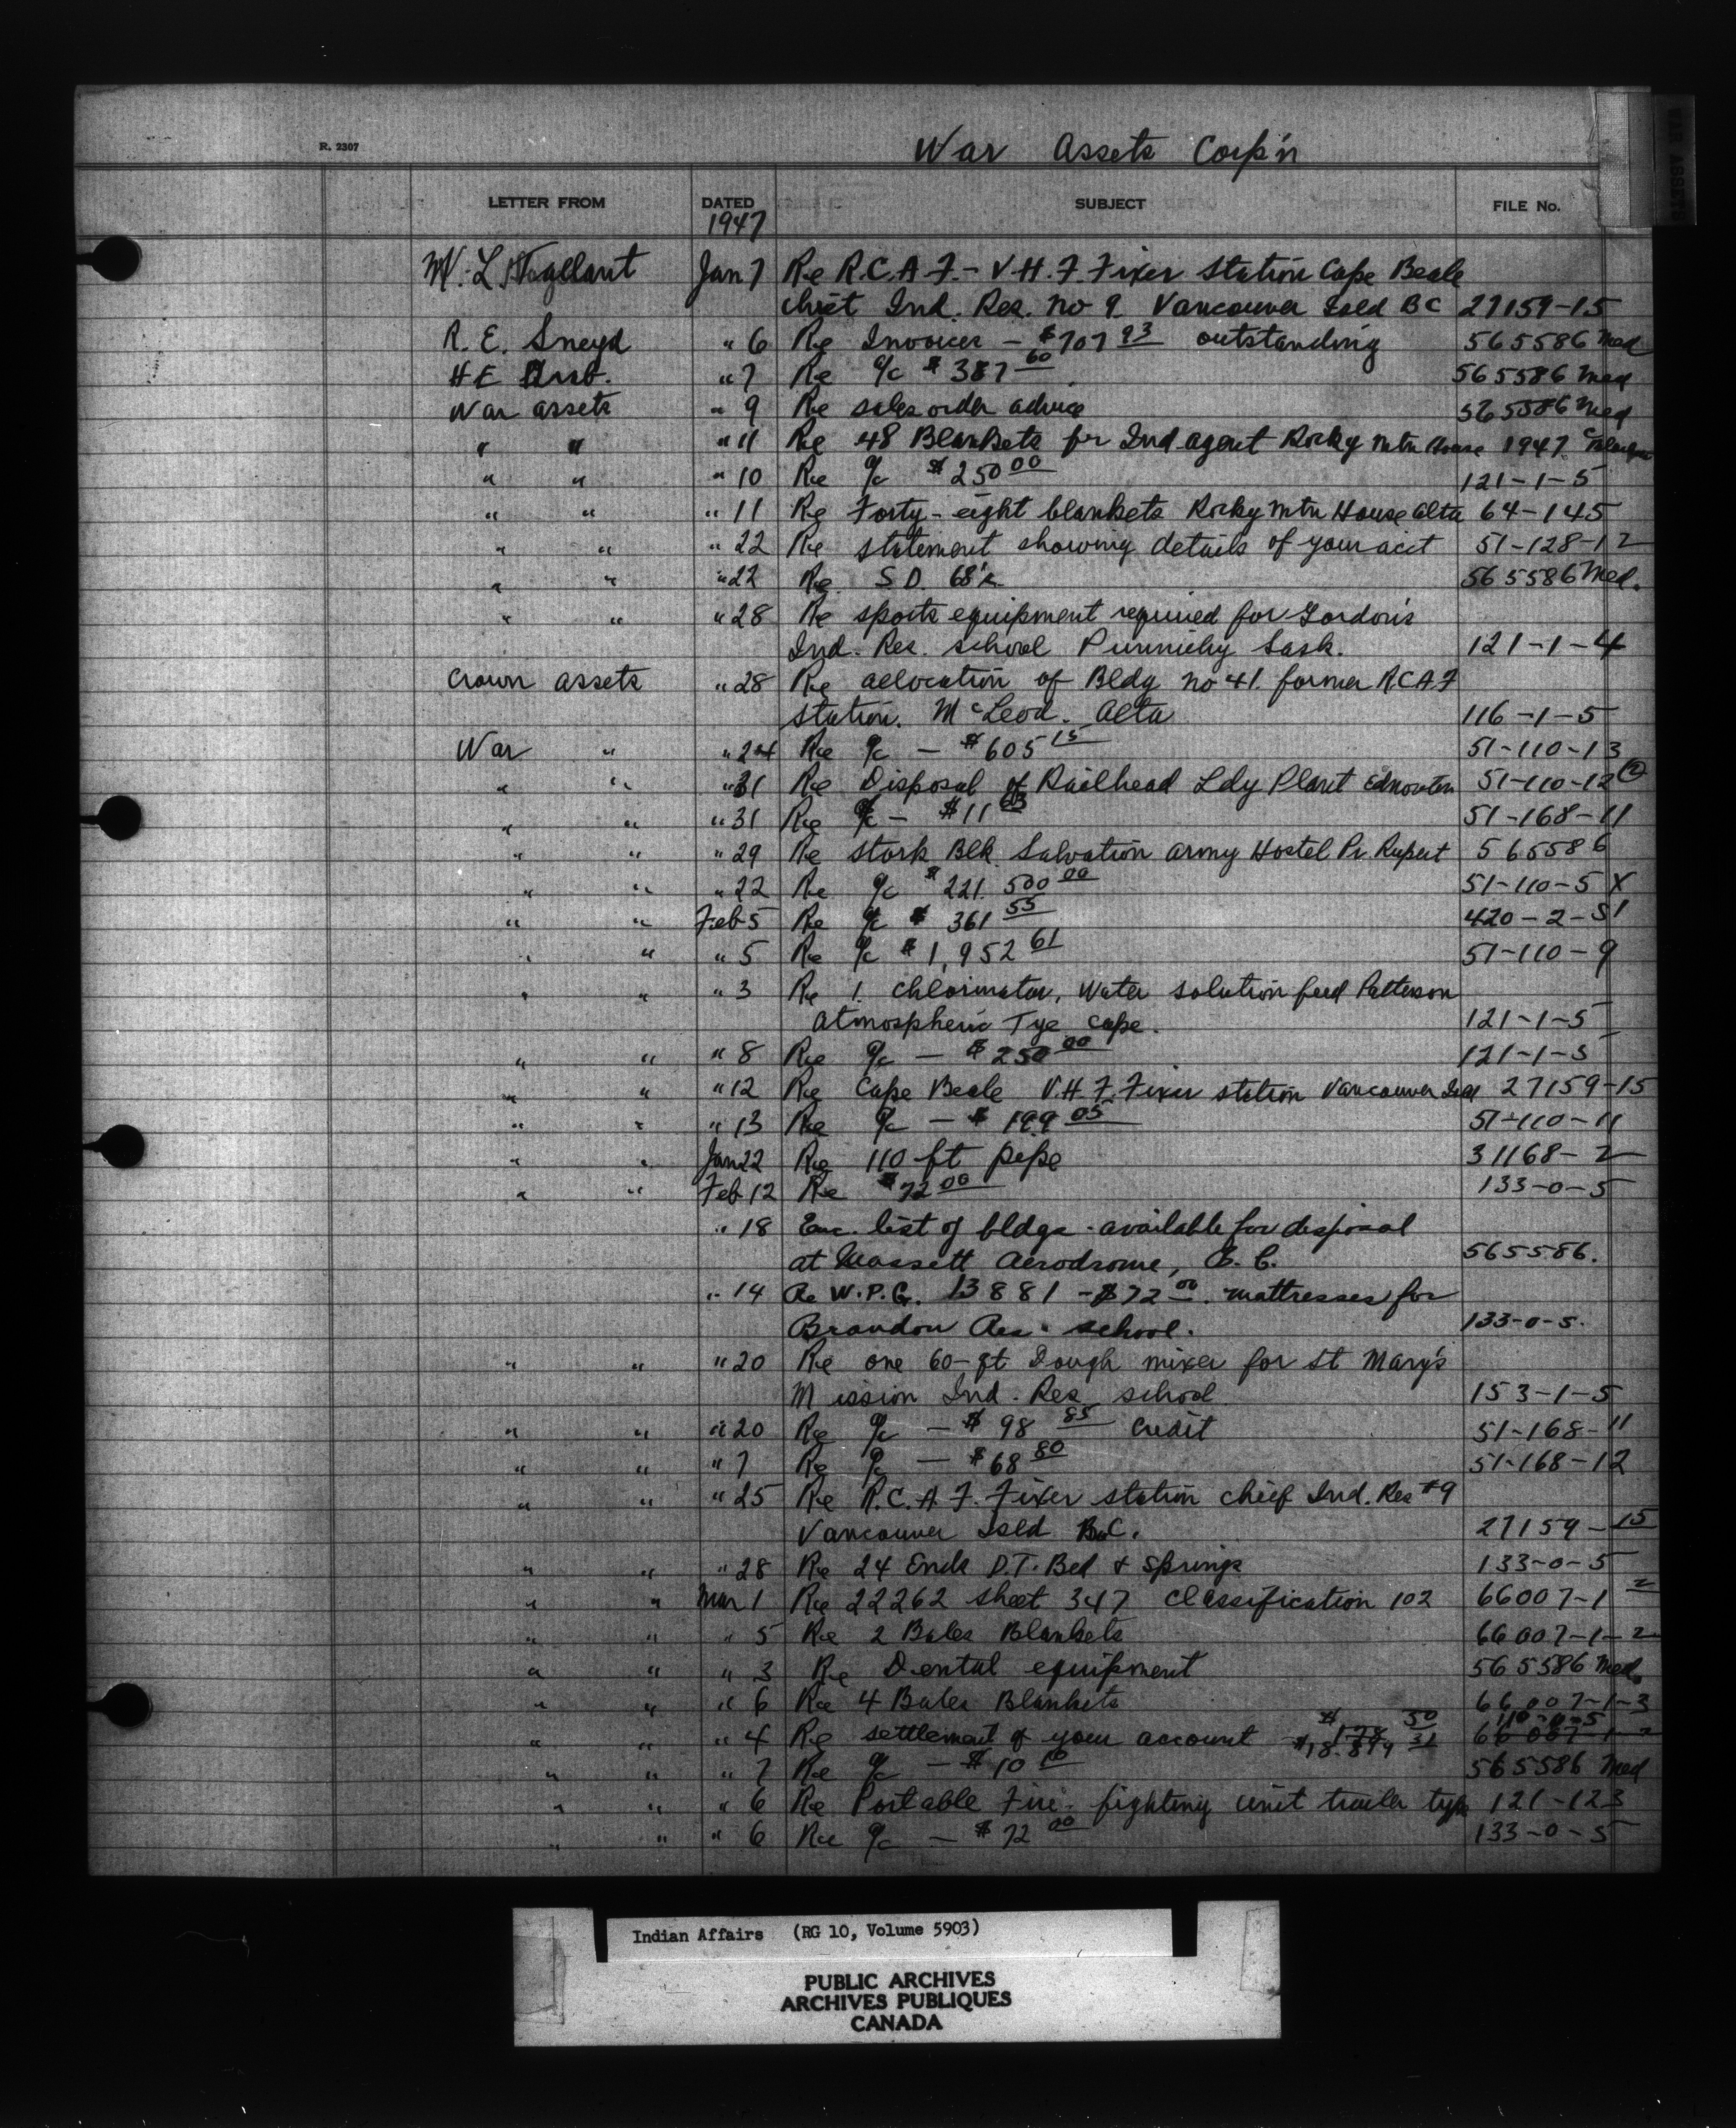 R. 2307
War Assets Corp'n
WAR ASSETS
LETTER FROM DATED SUBJECT FILE No.
1947
Jan 7 Re R.C.A.F. - V.H.F. Fixer Station Cape Beale
Ind. Res. No 9. Vancouver Isld BC 27159-15
R. E. Sneyd " 6 Re Invoices - $707 93 outstanding 565586 Med
H E " 7 Re a/c $387 60 565586 Med
War assets " 9 Re sales order advice 565586 Med
" " " 11 Re 48 Blankets for Ind agent Rocky Mtn House 1947
" " " 10 Re a/c $250 00 121-1-5
" " " 11 Re Forty-eight blankets Rocky Mtn House Alta 64-145
" " " 22 Re statement showing details of your acct 51-128-12
" " " 22 Re S D. 68's 565586 Med.
" " " 28 Re sports equipment required for Gordon's
Ind. Res. school Punnichy Sask. 121-1-4
Crown assets " 28 Re allocation of Bldg no 41. former RCAF
station. McLeod. Alta 116-1-5
War " " 24 Re a/c - $605 15 51-110-13
" " " 31 Re Disposal of Railhead Ldy Plant Edmonton 51-110-12 (2)
" " " 31 Re a/c - $11 63 51-168-11
" " " 29 Re Stork Blk Salvation Army Hostel Pr. Rupert 565586
" " " 22 Re a/c $221.500 00 51-110-5 X
" " Feb 5 Re a/c $361 55 420-2-51
" " " 5 Re a/c $1,952 61 51-110-9
" " " 3 Re 1. Chlorinator, Water solution feed Patterson
Atmospheric Tye cape. 121-1-5
" " " 8 Re a/c - $250 00 121-1-5
" " " 12 Re Cape Beale V.H.F. Fixer station Vancouver Isld 27159-15
" " " 13 Re a/c - $199 05 51-110-11
" " Jan 22 Re 110 ft pipe 31168-2
" " Feb 12 Re $72 00 133-0-5
" 18 Enc. list of bldgs - available for disposal
at Massett Aerodrome, B. C. 565586.
" 14 Re W.P.G. 13881 - $72 00. mattresses for
Brandon Res. school. 133-0-5.
" " " 20 Re one 60-qt Dough mixer for St Mary's
Mission Ind. Res school 153-1-5
" " " 20 Re a/c - $98 85 Credit 51-168-11
" " " 7 Re a/c - $68 80 51-168-12
" " " 25 Re R.C.A.F. Fixer station chief Ind. Res #9
Vancouver Isld B.C. 27159-15
" " " 28 Re 24 Ends D.T. Bed & Springs 133-0-5
" " Mar 1 Re 22262 sheet 347 Classification 102 66007-1-2
" " " 5 Re 2 Bales Blankets 66007-1-2
" " " 3 Re Dental equipment 565586 Med.
" " " 6 Re 4 Bales Blankets 66007-1-3
$178 50 110-0-5
" " " 4 Re settlement of your account $18.879 31 66007-1-2
" " " 7 Re a/c - $10 10 565586 Med
" " " 6 Re Portable Fire-fighting unit trailer type 121-123
" " " 6 Re a/c - $72 00 133-0-5
Indian Affairs (RG 10, Volume 5903)
PUBLIC ARCHIVES
ARCHIVES PUBLIQUES
CANADA